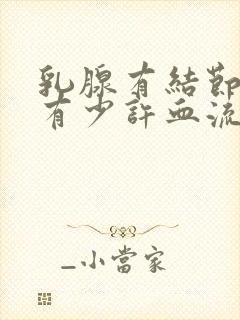 乳腺有結節
有少許血流
_小當家